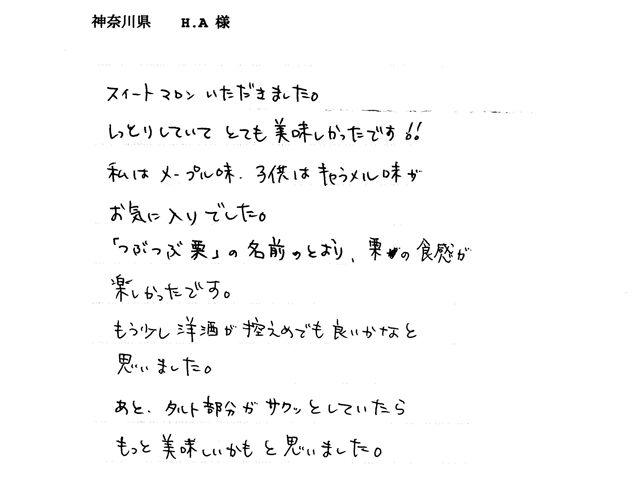 神奈川県 H.A 様
スィートマロンいただきました。
しっとりしていてとても美味しかったです!!
私はメープル味、子供はキャラメル味が
お気に入りでした。
「つぶつぶ栗」の名前のとおり、栗の食感が
楽しかったです。
もう少し洋酒が控えめでも良いかなと
思いました。
あと、タルト部分がサクッとしていたら
もっと美味しいかもと思いました。